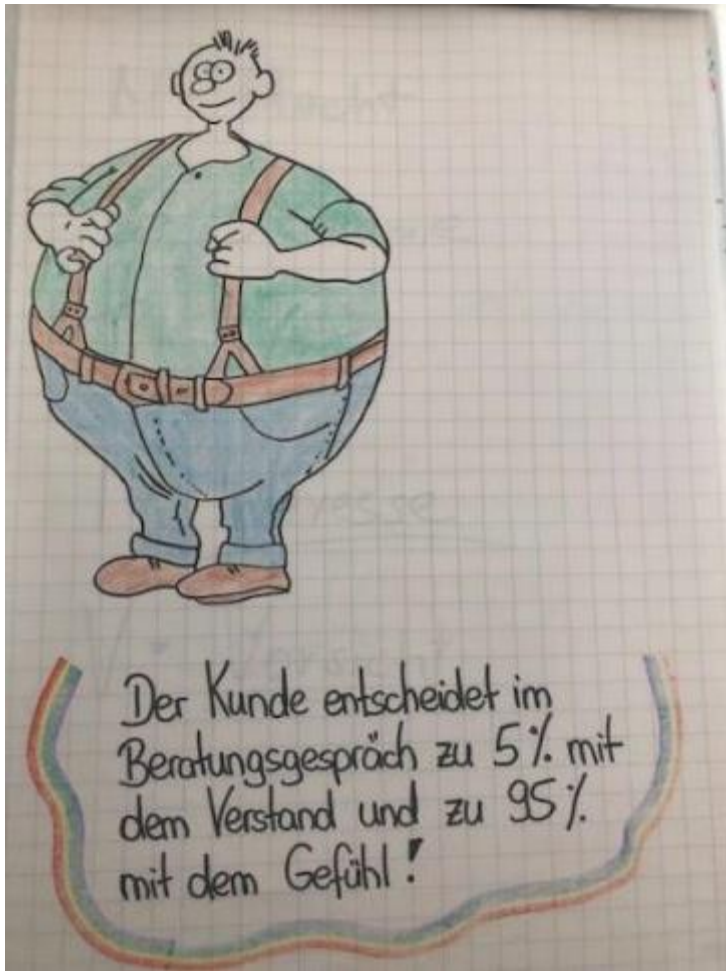 Der Kunde entscheidet im
Beratungsgespräch zu 5% mit
dem Verstand und zu 95%
mit dem Gefühl!